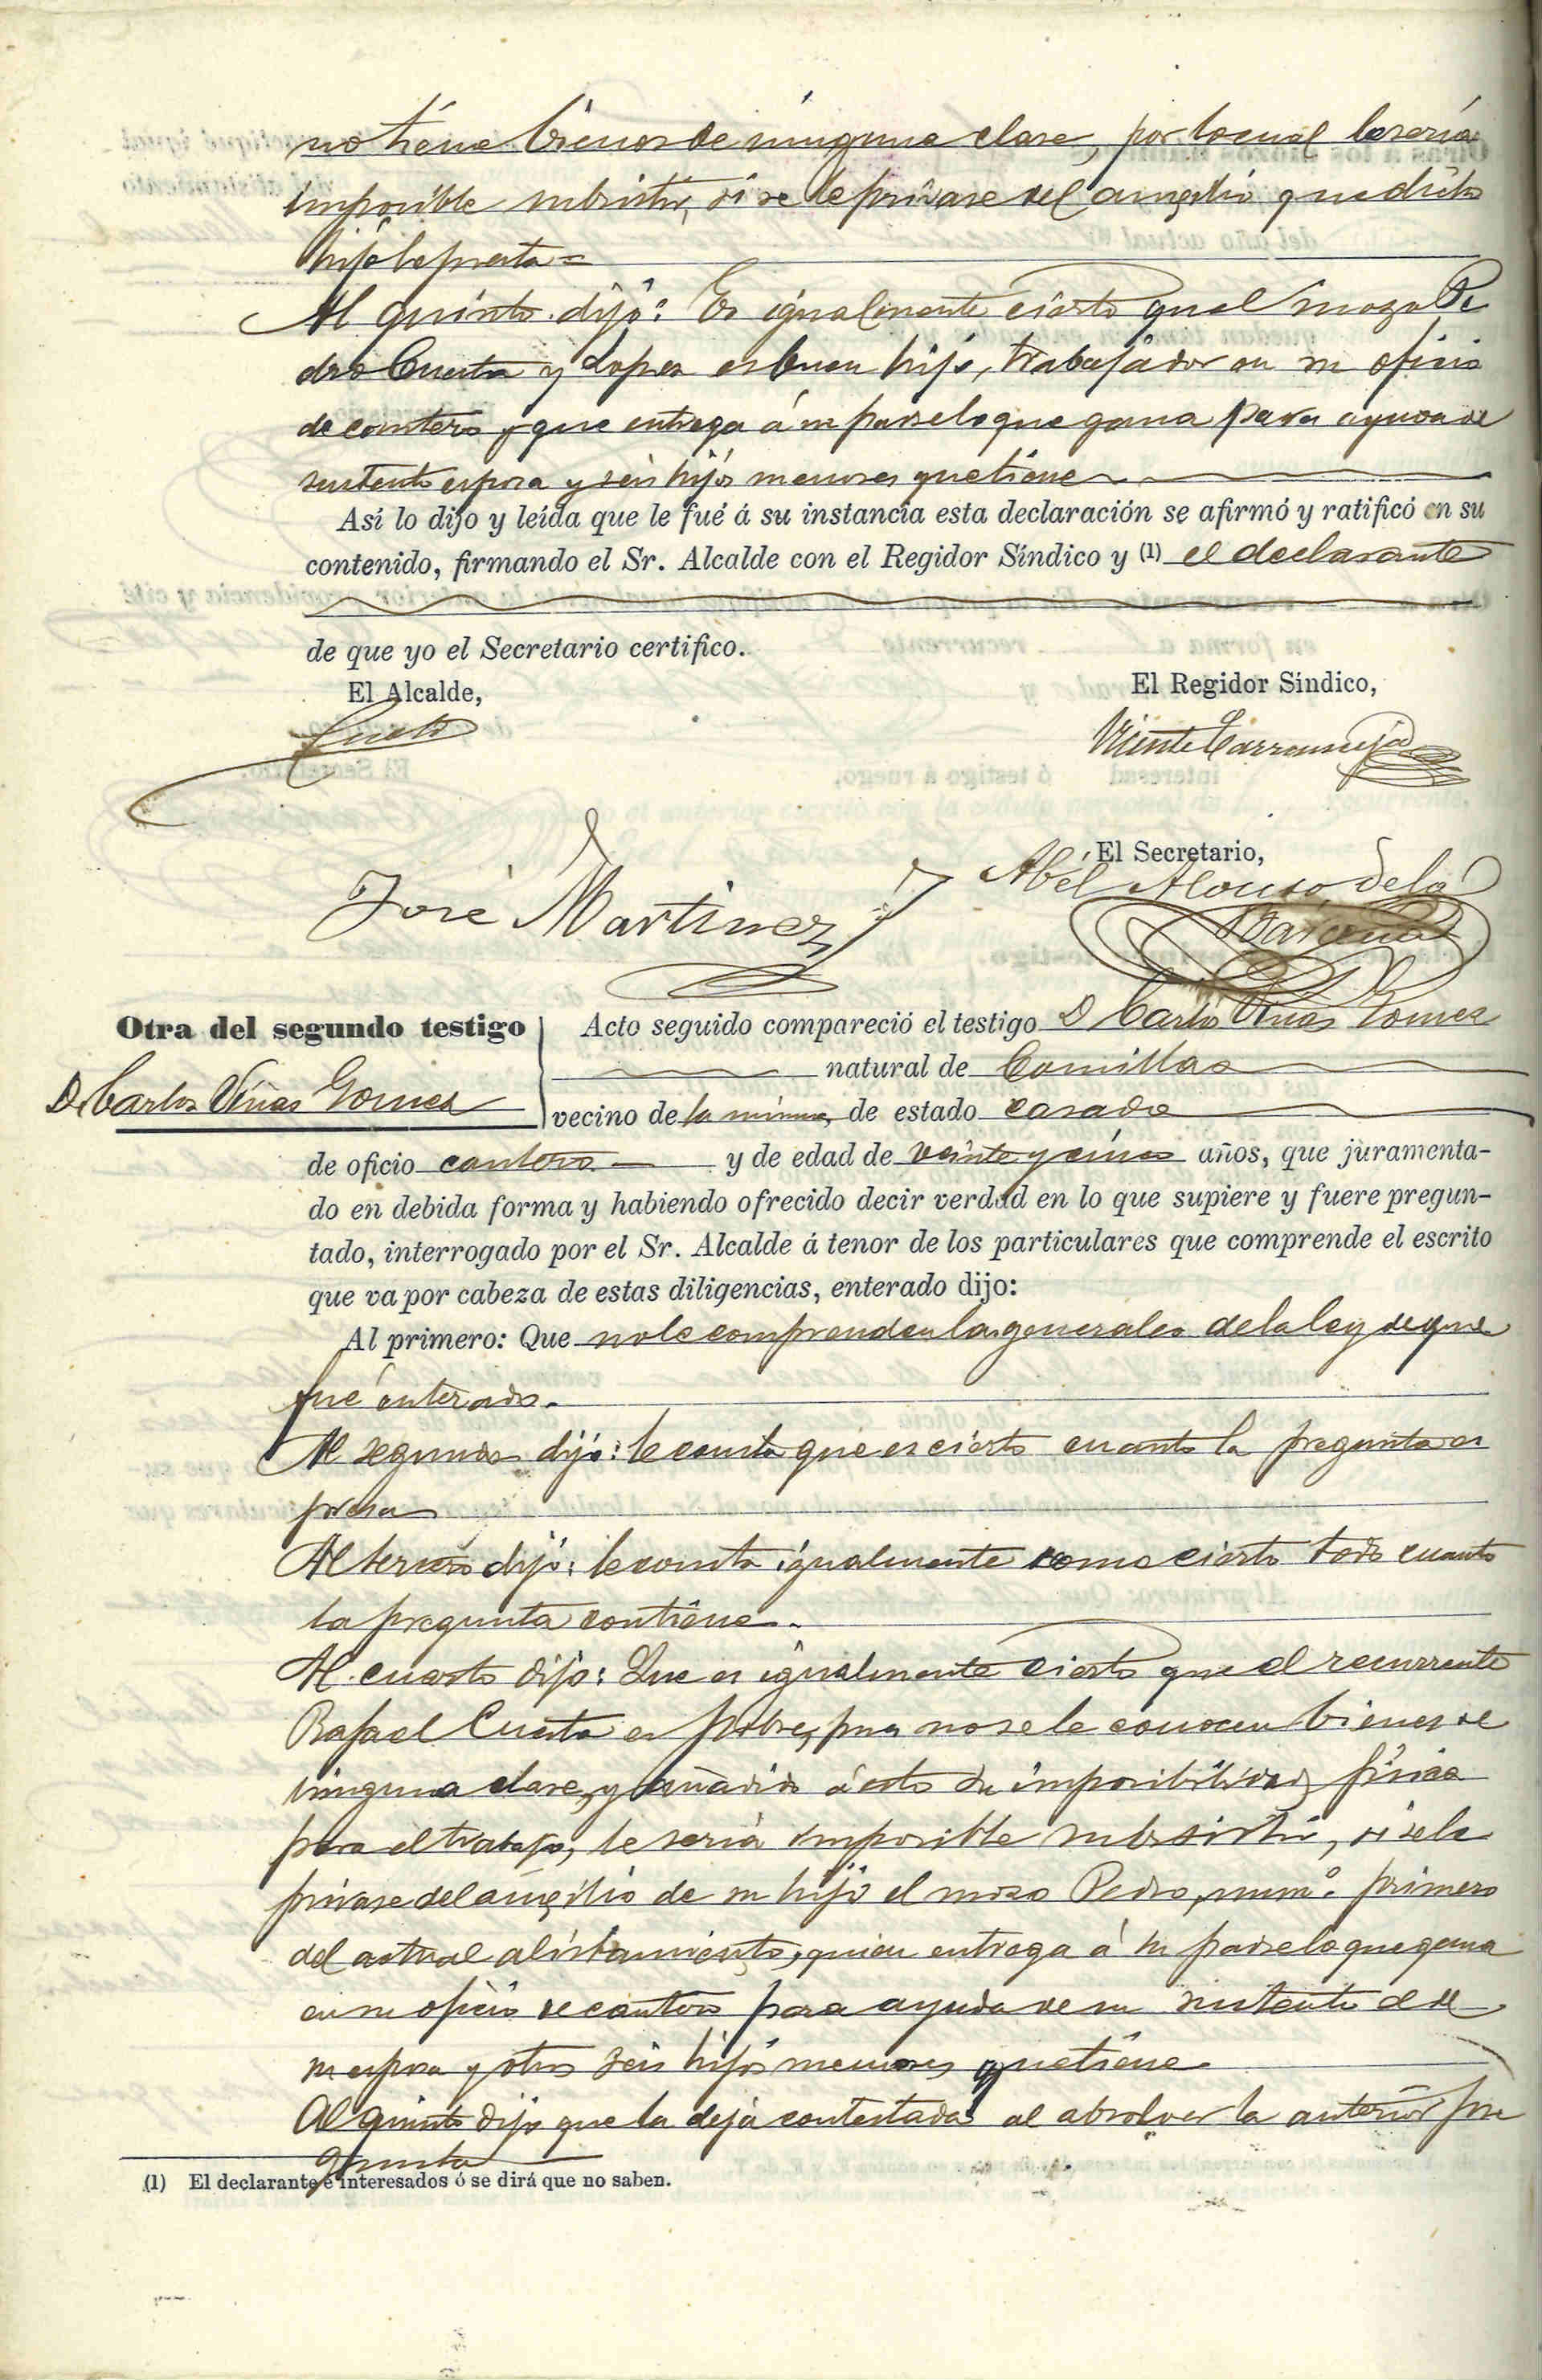 no tiene bienes de ninguna clase, por lo cual le sería
imposible subsistir, si se le privase del augilio que dicho
hijo le presta=
Al quinto dijo: Es igualmente cierto que el mozo Pe
dro Cuesta y Lopez es buen hijo, trabajador en su oficio
de cantero y que entrega á su padre lo que gana para ayuda de
sustento esposa y seis hijos menores que tiene
Así lo dijo y leída que le fué á su instancia esta declaración se afirmó y ratificó en su
contenido, firmando el Sr. Alcalde con el Regidor Síndico y (1) el declarante
de que yo el Secretario certifico.
El Alcalde,
El Regidor Síndico,
Cueto
Vicente
El Secretario,
José Martinez
Abél Alonso de la
Barcena
Otra del segundo testigo
D Carlos Viñas Gomez
Acto seguido compareció el testigo D Carlos Viñas Gomez
natural de Comillas
vecino de la misma, de estado casado
de oficio cantero y de edad de veinte y cinco años, que juramenta-
do en debida forma y habiendo ofrecido decir verdad en lo que supiere y fuere pregun-
tado, interrogado por el Sr. Alcalde á tenor de los particulares que comprende el escrito
que va por cabeza de estas diligencias, enterado dijo:
Al primero: Que no le comprenden las generales de la ley de que
fué enterado.
Al segundo dijo: le consta que es cierto cuanto la pregunta es
presa
Al tercero dijo: le consta igualmente como cierto todo cuanto
la pregunta contiene.
Al cuarto dijo: Que es igualmente cierto que el recurrente
Rafael Cuesta es pobre, pues no se le conocen bienes de
ninguna clase, y añadido á esto su imposibilidad física
para el trabajo, le seria imposible subsistir, si se le
privase del augilio de su hijo el mozo Pedro, numº. primero
del actual alistamiento, quien entrega á su padre lo que gana
en su oficio de cantero para ayuda de su sustento el de
su esposa y otros seis hijos menores que tiene.
Al quinto dijo que la deja contestada al absolver la anterior pre
gunta
(1) El declarante é interesados ó se dirá que no saben.